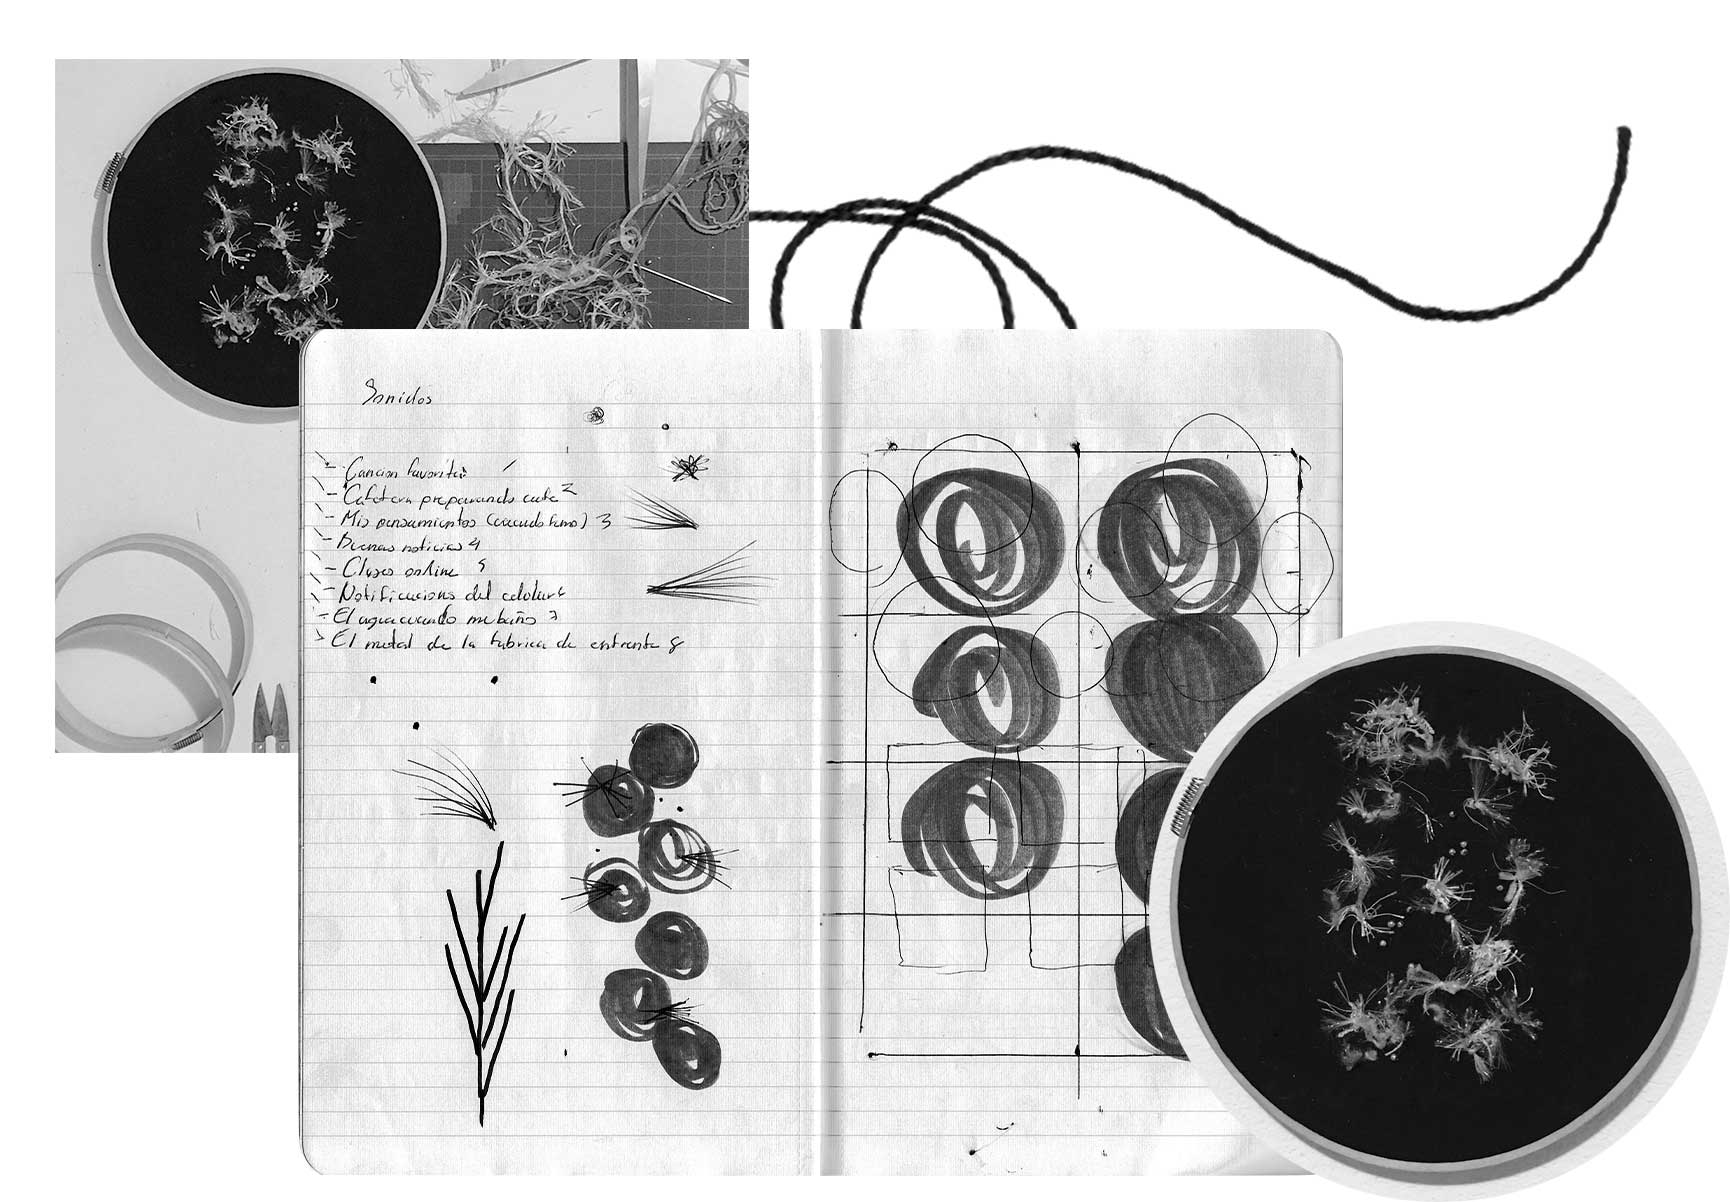 Sonidos
- Cancion favorita 1
- Cafetera preparando cafe 2
- Mis pensamientos (cuando fumo) 3
- Buenas noticias 4
- Clases online 5
- Notificacions del celular 6
- El agua cuando me baño 7
- El metal de la fabrica de enfrente 8